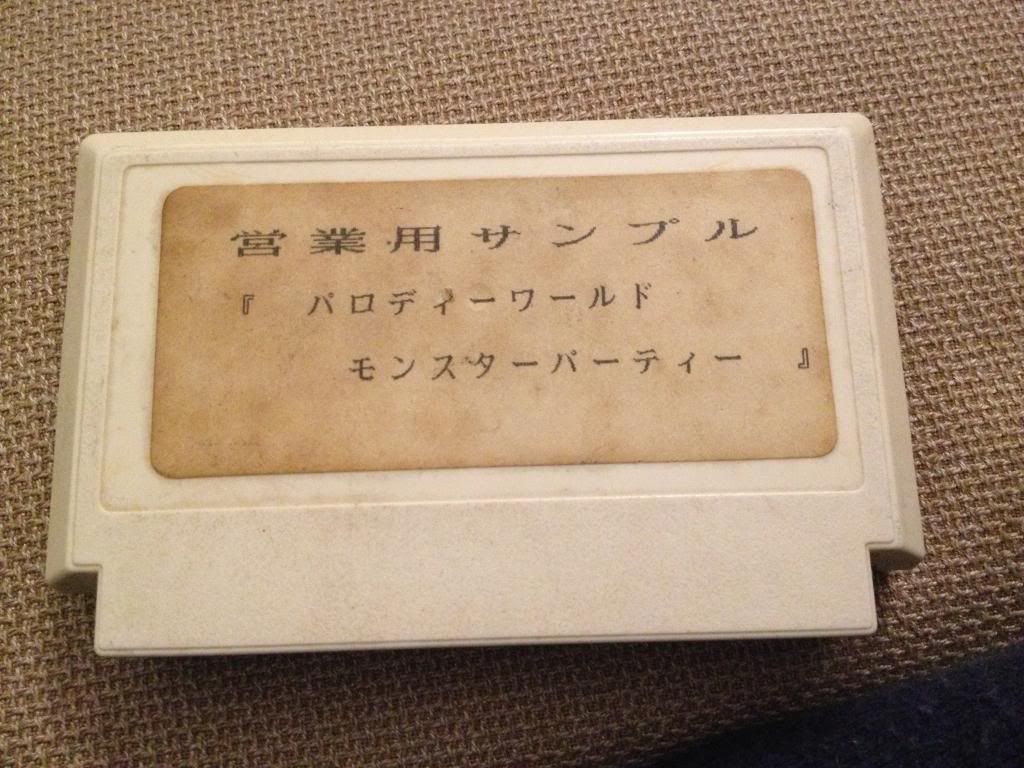 営業用サンプル
『 パロディーワールド
モンスターパーティー 』